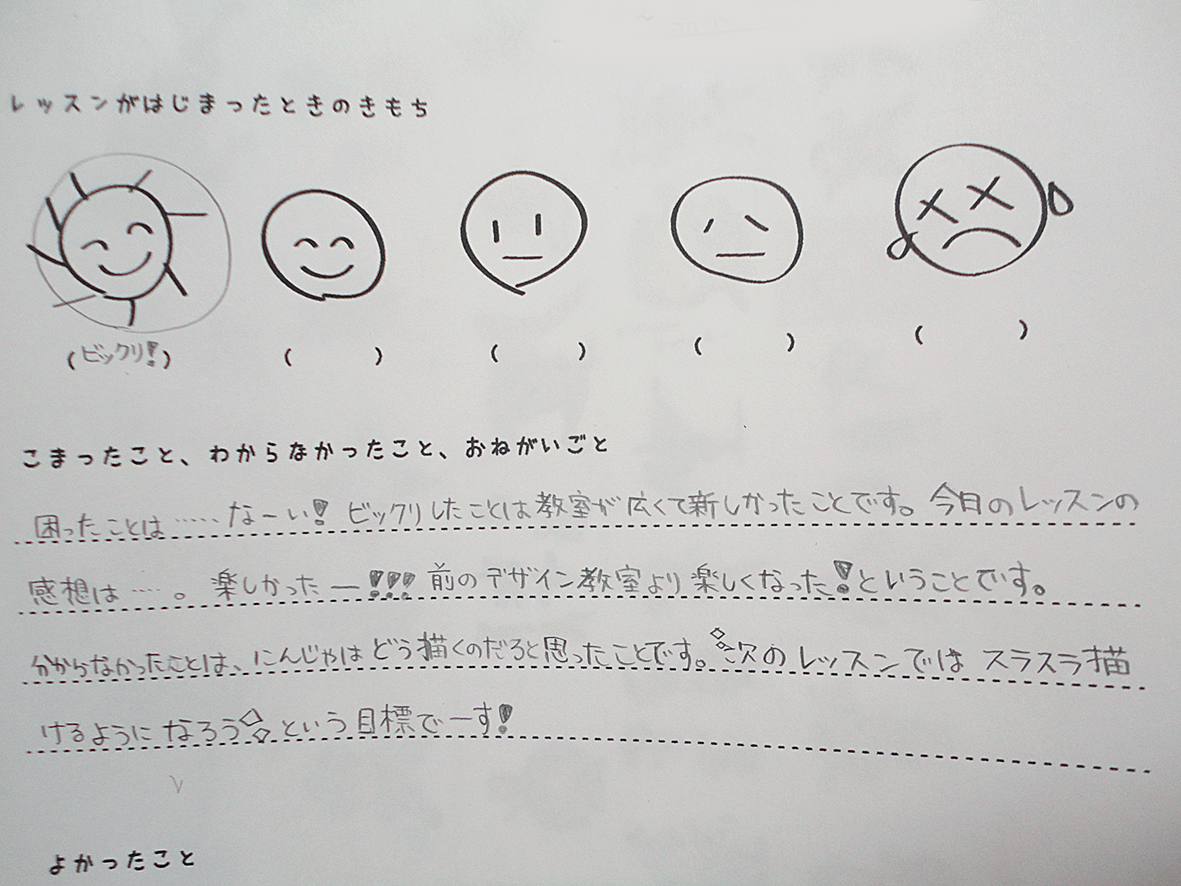 レッスンがはじまったときのきもち
(ビックリ!) ( ) ( ) ( ) ( )
こまったこと、わからなかったこと、おねがいごと
困ったことは……なーい! ビックリしたことは教室が広くて新しかったことです。今日のレッスンの
感想は…。楽しかったー!!! 前のデザイン教室より楽しくなった!ということです。
分からなかったことは、にんじゃはどう描くのだろと思ったことです。次のレッスンではスラスラ描
けるようになろうという目標でーす!
よかったこと